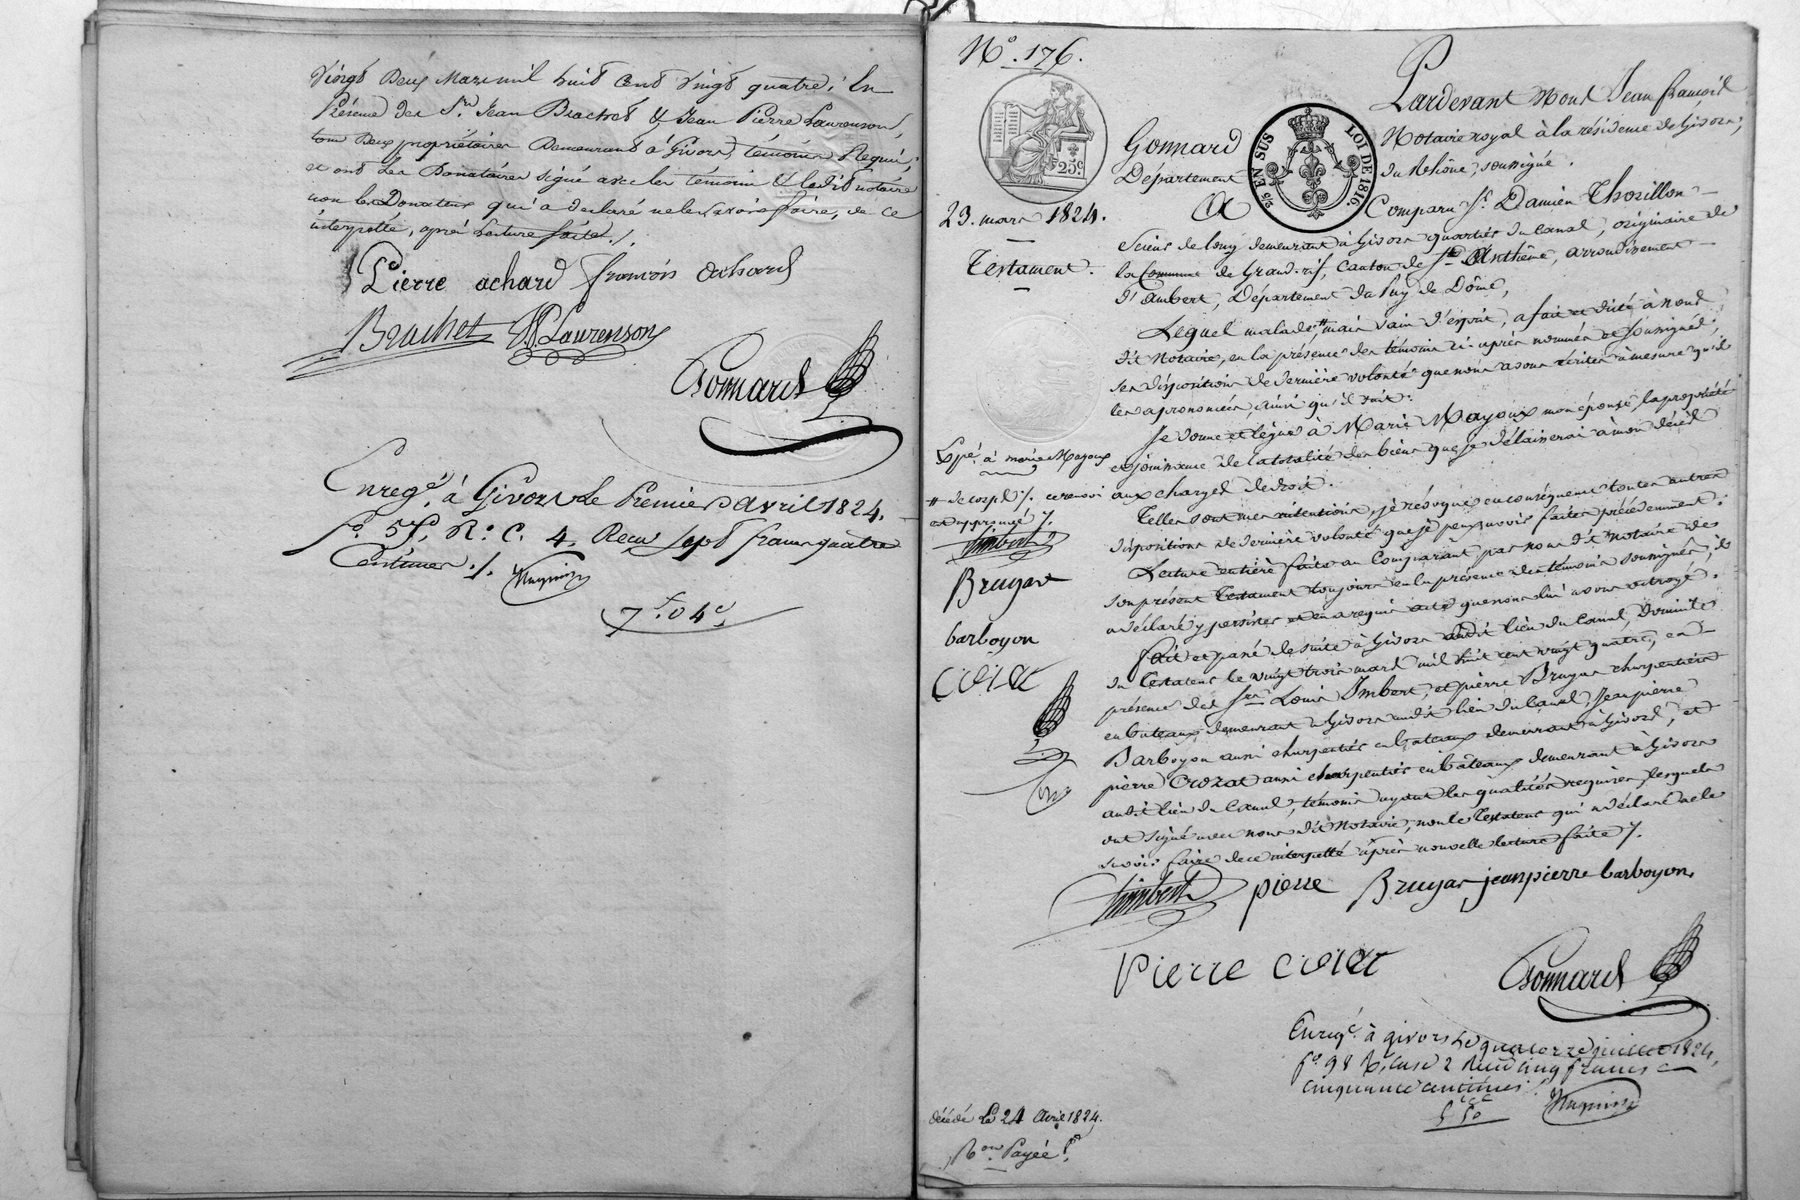 Vingt Deux Mars mil huit Cent Vingt quatre, En
Présence des Srs Jean Brachet & Jean Pierre Laurenson,
tous deux propriétaires Demeurant à Givors, témoins Requis,
et ont les Donataires signé avec les témoins & ledit notaire
non le Donateur qui a declaré ne le savoir faire, de ce
interpellé, après lecture faite ./.
Pierre achard françois achard
Brachet JP Laurenson
Gonnard
Enregé. à Givors Le Premier avril 1824.
fo. 57, Ro. C. 4. Reçu sept francs quatre
Centimes ./.
7f. 04c.
No. 176.
25c.
2/10 EN SUS
LOI DE 1816.
23. mars 1824.
Testament.
Expé. à marie Mayoux
# de corps ./. ce renvoi
approuvé ./.
Imbert
Bruyas
barboyon
crozat
décédé Le 24 Avril 1824.
Payée
Pardevant Nous Jean françois
Gonnard Notaire royal à la résidence de Givors,
Département du Rhône, soussigné.
A Comparu Sr. Damien Thorillon
Scieur de long demeurant à Givors quartier du Canal, originaire de
la Commune de Grand-rif, Canton de St. Anthême, arrondissement
d'Ambert, Département du Puy de Dôme,
Lequel malade # mais sain d'esprit, a fait et dicté à nous
dit Notaire, en la présence des témoins ci-après nommés et soussignés,
ses dispositions de dernière volonté que nous avons écrites à mesure qu'il
les a prononcées, ainsi qu'il suit:
Je donne et lègue à Marie Mayoux mon épouse, la propriété
et jouissance de la totalité des biens que je délaisserai à mon décès
aux charges de droit.
Telles sont mes intentions, je révoque en conséquence toutes autres
dispositions de dernière volonté que je peux avoir faites précédemment.
Lecture entière faite au Comparant par nous dit Notaire des
son présent Testament toujours en la présence des témoins soussignés, il
a déclaré y persister et en a requis acte que nous lui avons octroyé.
fait et passé de suite à Givors audit lieu du Canal, Domicile
du Testateur le vingt trois mars mil huit cent vingt quatre, en
présence des Srs Louis Imbert, et pierre Bruyas charpentiers
en bateaux, demeurant à Givors audit lieu du Canal, Jean pierre
Barboyon aussi charpentier en bateaux demeurant à Givors, et
pierre Crozat aussi charpentier en bateaux demeurant à Givors
audit lieu du Canal, témoins ayant les qualités requises, lesquels
ont signé avec nous dit Notaire, non le Testateur qui a déclaré ne le
savoir faire de ce interpellé après nouvelle lecture faite ./.
Imbert pierre Bruyas jean pierre barboyon
pierre crozat
Gonnard
Enregé. à givors Le quatorze juillet 1824,
fo. 98 Ro, case 2 Reçu cinq francs
cinquante centimes
5f 50c